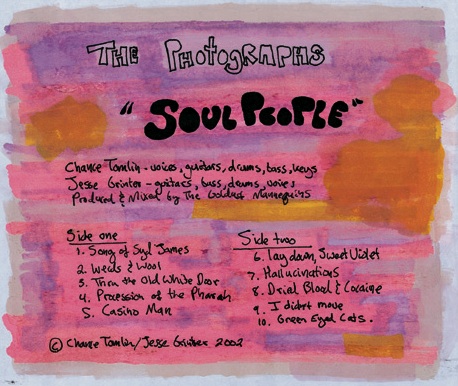 THE PHOTOGRAPHS
"SOUL PEOPLE"
Chance Tomlin - voices, guitars, drums, bass, keys
Jesse Grinter - guitars, bass, drums, voices
Produced & Mixed by The Goldust Mannequins
Side one
1. Song of Syd James
2. Weids & Wool
3. Thru the Old White Door
4. Procession of the Pharoah
5. Casino Man
Side two
6. Lay down, Sweet Violet
7. Hallucinations
8. Dried Blood & Cocaine
9. I didn't move
10. Green Eyed Cats.
© Chance Tomlin/Jesse Grinter 2002